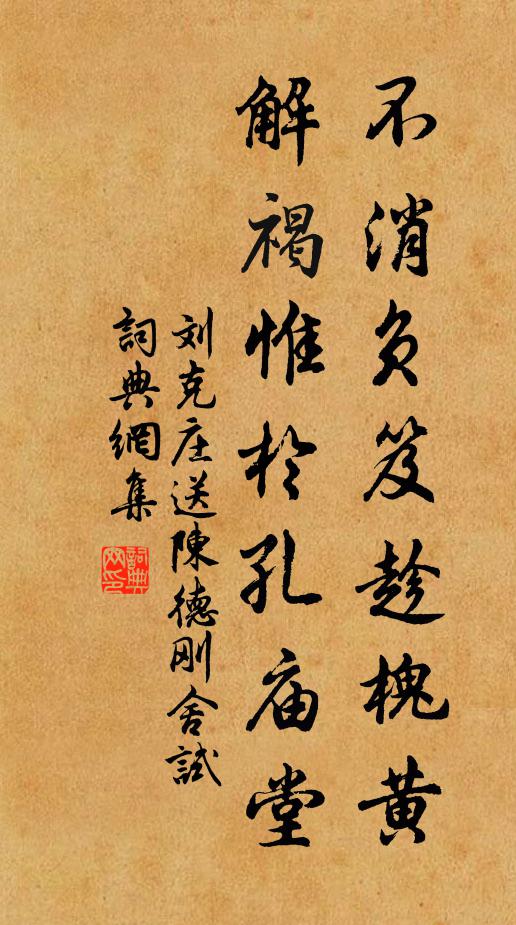 不消負笈趁槐黄
解褐惟於孔庙堂
刘克庄送陳德刚舍試
詞典網集
詞典网印